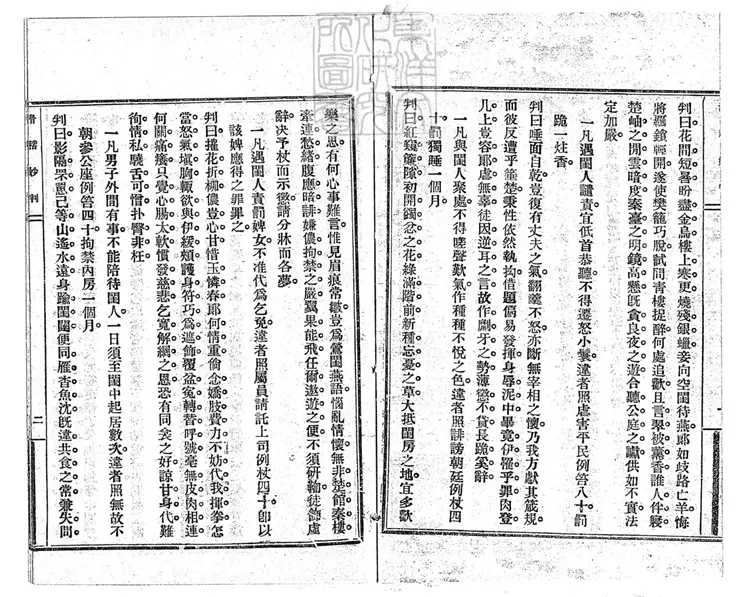 判曰花間短暑盼盡金烏樓上寒更燒殘銀蠟妾向空閨待燕郎如歧路亡羊悔
將纏鎖輕開遂使樊籠巧脫試問青樓捉醉何處追歡且言翠被薰香誰人伴寢
楚岫之閒雲暗度秦臺之明鏡高懸既貪良夜之遊合聽公庭之讞供如不實法
定加嚴
一凡遇閨人譴責宜低首恭聽不得遷怒小鬟違者照虐害平民例笞八十罰
跪一炷香
判曰唾面自乾豈復有丈夫之氣翻羹不怒亦斷無宰相之懷乃我方獻其箴規
而彼反遭乎箠楚秉性依然執拗借題偏易發揮身辱泥中畢竟伊罹乎罪肉登
几上豈容耶虐無辜徒因逆耳之言故作鬭牙之勢薄懲不貸長跪奚辭
一凡與閨人聚處不得嗟聲歎氣作種種不悅之色違者照誹謗朝廷例杖四
十罰獨睡一個月
判曰紅窺簾隙初開鐲忿之花綠滿階前新種忘憂之草大抵閨房之地宜多歡
樂之恩有何心事難言惟見眉痕常皺豈爲鶯閨燕語惱亂情懷無非楚館秦樓
牽連愁緒腹應暗誹嫌儂拘禁之嚴翼果能飛任爾遨遊之便不須研鞫徒飾虛
辭決予杖而示懲請分牀而各夢
一凡遇閨人責罰婢女不准代爲乞免違者照屬員請託上司例杖四十卽以
該婢應得之罪罪之
判曰摧花折柳儂豈心甘惜玉憐香郎何情重倘念嬌肢費力不妨代我揮拳怎
當怒氣塡胸輒欲與伊緩頰護身符巧爲遮飾覆盆寃轉替呼號毫無皮肉相連
何關痛癢只覺心腸太軟慣發慈悲乞寬解網之恩恐有同衾之好諒甘身代難
徇情私饒舌可憎扑臀非枉
一凡男子外間有事不能陪待閨人一日須至閨中起居數次違者照無故不
朝參公座例笞四十拘禁內房一個月
判曰影隔罘罳己等山遙水遠身踰閨闥便同雁杳魚沈既違共食之常兼失問
二